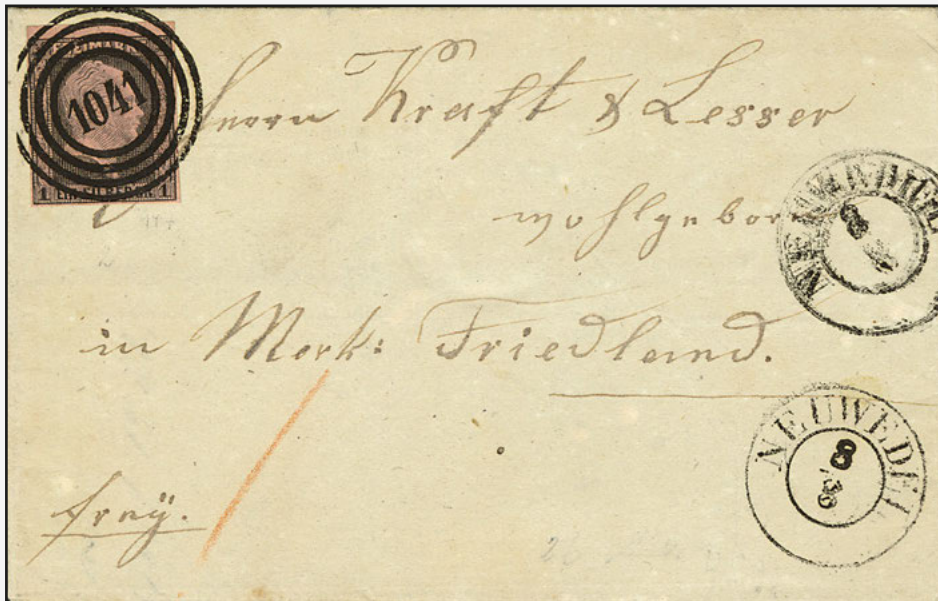 1041
1 1
Herrn Kraft & Lesser
wohlgebor
in Merk: Friedland.
frey.
NEUWEDELL
8
NEUWEDELL
8